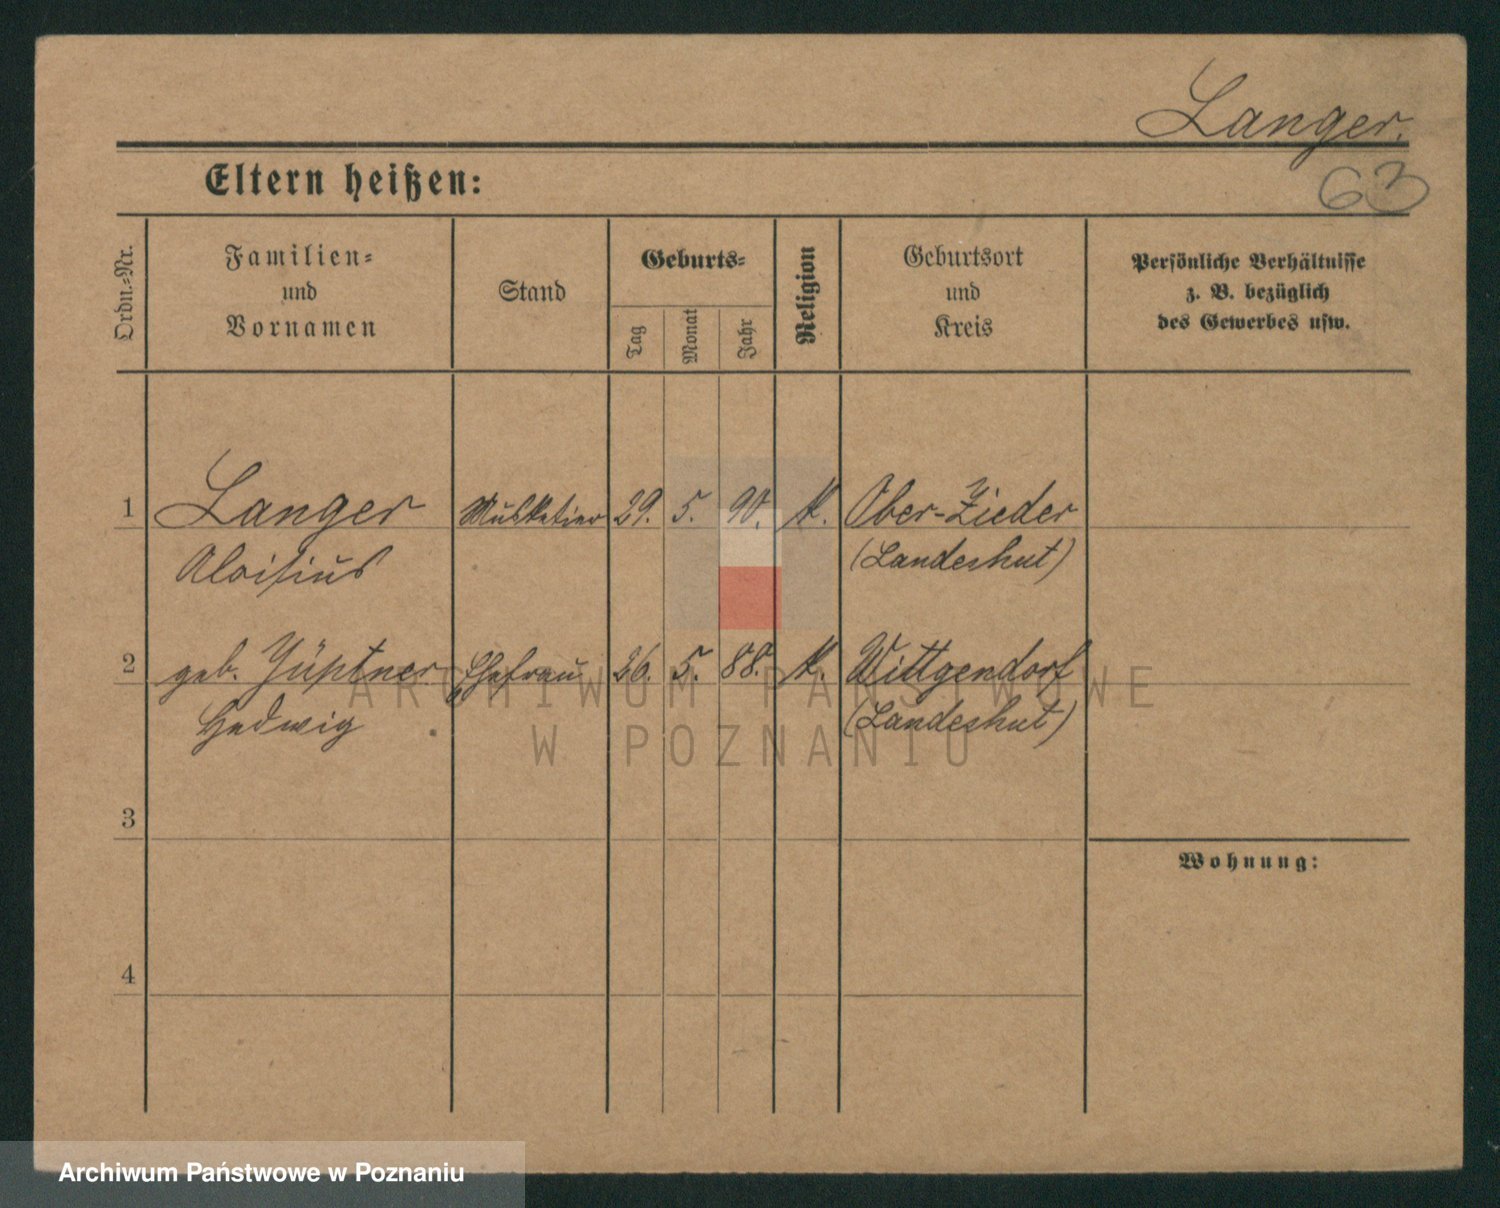 Langer.
Eltern heißen:
63
Ordn.-Nr.
Familien-
und
Vornamen
Stand
Geburts-
Tag
Monat
Jahr
Religion
Geburtsort
und
Kreis
Persönliche Verhältnisse
z. B. bezüglich
des Gewerbes usw.
1 Langer Musketier 29. 5. 90. k. Ober-Zieder
Aloisius (Landeshut)
2 geb. Jüptner Ehefrau 26. 5. 88. k. Wittgendorf
Hedwig (Landeshut)
ARCHIWUM PAŃSTWOWE
W POZNANIU
3
Wohnung:
4
Archiwum Państwowe w Poznaniu